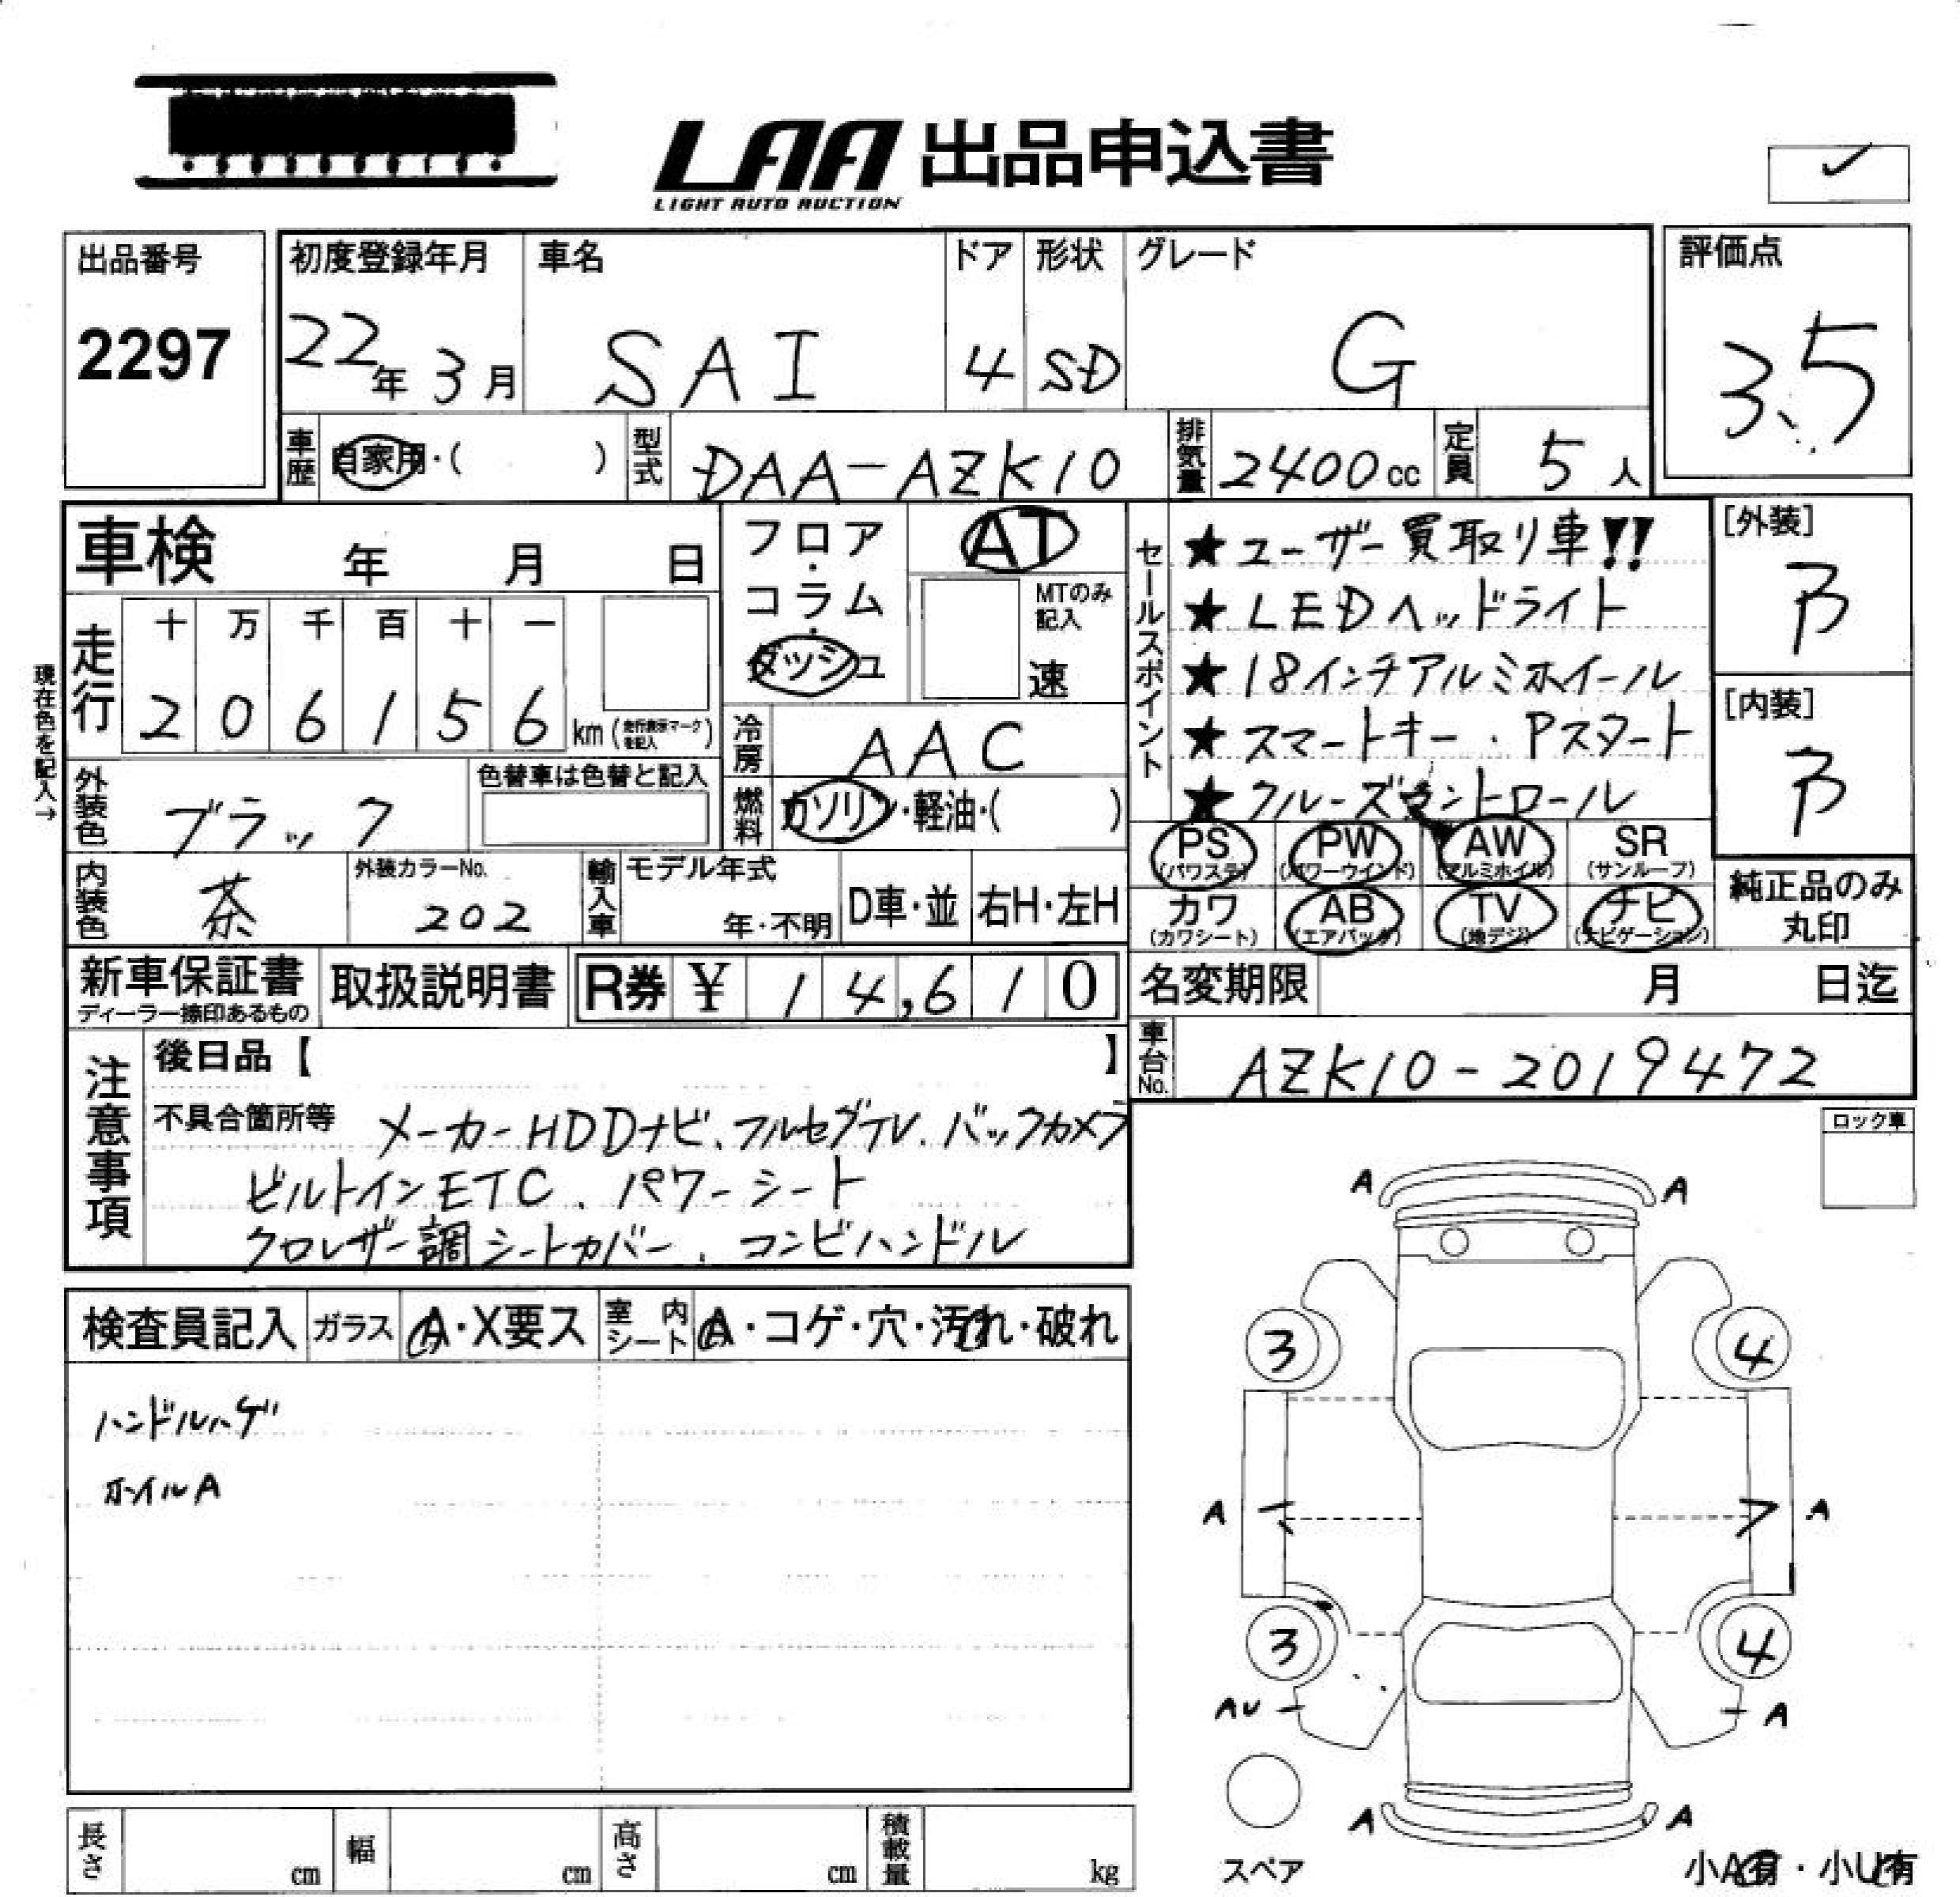 LAA 出品申込書
LIGHT AUTO AUCTION
出品番号
2297
初度登録年月
22年 3月
車名
SAI
ドア
4
形状
SD
グレード
G
評価点
3.5
車歴
自家用・( )
型式
DAA-AZK10
排気量
2400cc
定員
5人
車検 年 月 日
走行
十 万 千 百 十 一
2 0 6 1 5 6 km (走行表示マークを記入)
現在色を記入→
外装色
ブラック
色替車は色替と記入
内装色
茶
外装カラーNo.
202
フロア・
コラム・
ダッシュ
AT
MTのみ
記入
速
冷房
AAC
燃料
ガソリン・軽油・( )
輸入車
モデル年式
年・不明
D車・並
右H・左H
セールスポイント
★ユーザー買取り車!!
★LEDヘッドライト
★18インチアルミホイール
★スマートキー・Pスタート
★クルーズコントロール
PS (パワステ)
PW (パワーウインド)
AW (アルミホイル)
SR (サンルーフ)
カワ (カワシート)
AB (エアバック)
TV (地デジ)
ナビ (ナビゲーション)
[外装]
B
[内装]
B
純正品のみ
丸印
新車保証書
ディーラー捺印あるもの
取扱説明書
R券 ¥ 14,610
名変期限 月 日迄
車台No.
AZK10-2019472
注意事項
後日品【 】
不具合箇所等 メーカーHDDナビ、フルセグTV、バックカメラ
ビルトインETC、パワーシート
クロレザー調シートカバー、コンビハンドル
ロック車
検査員記入
ガラス
A・X要ス
室内シート
A・コゲ・穴・汚れ・破れ
ハンドルハゲ
ホイルA
A A
3 4
A A
3 4
AU A
A A
スペア
小A有・小U有
長さ cm
幅 cm
高さ cm
積載量 kg